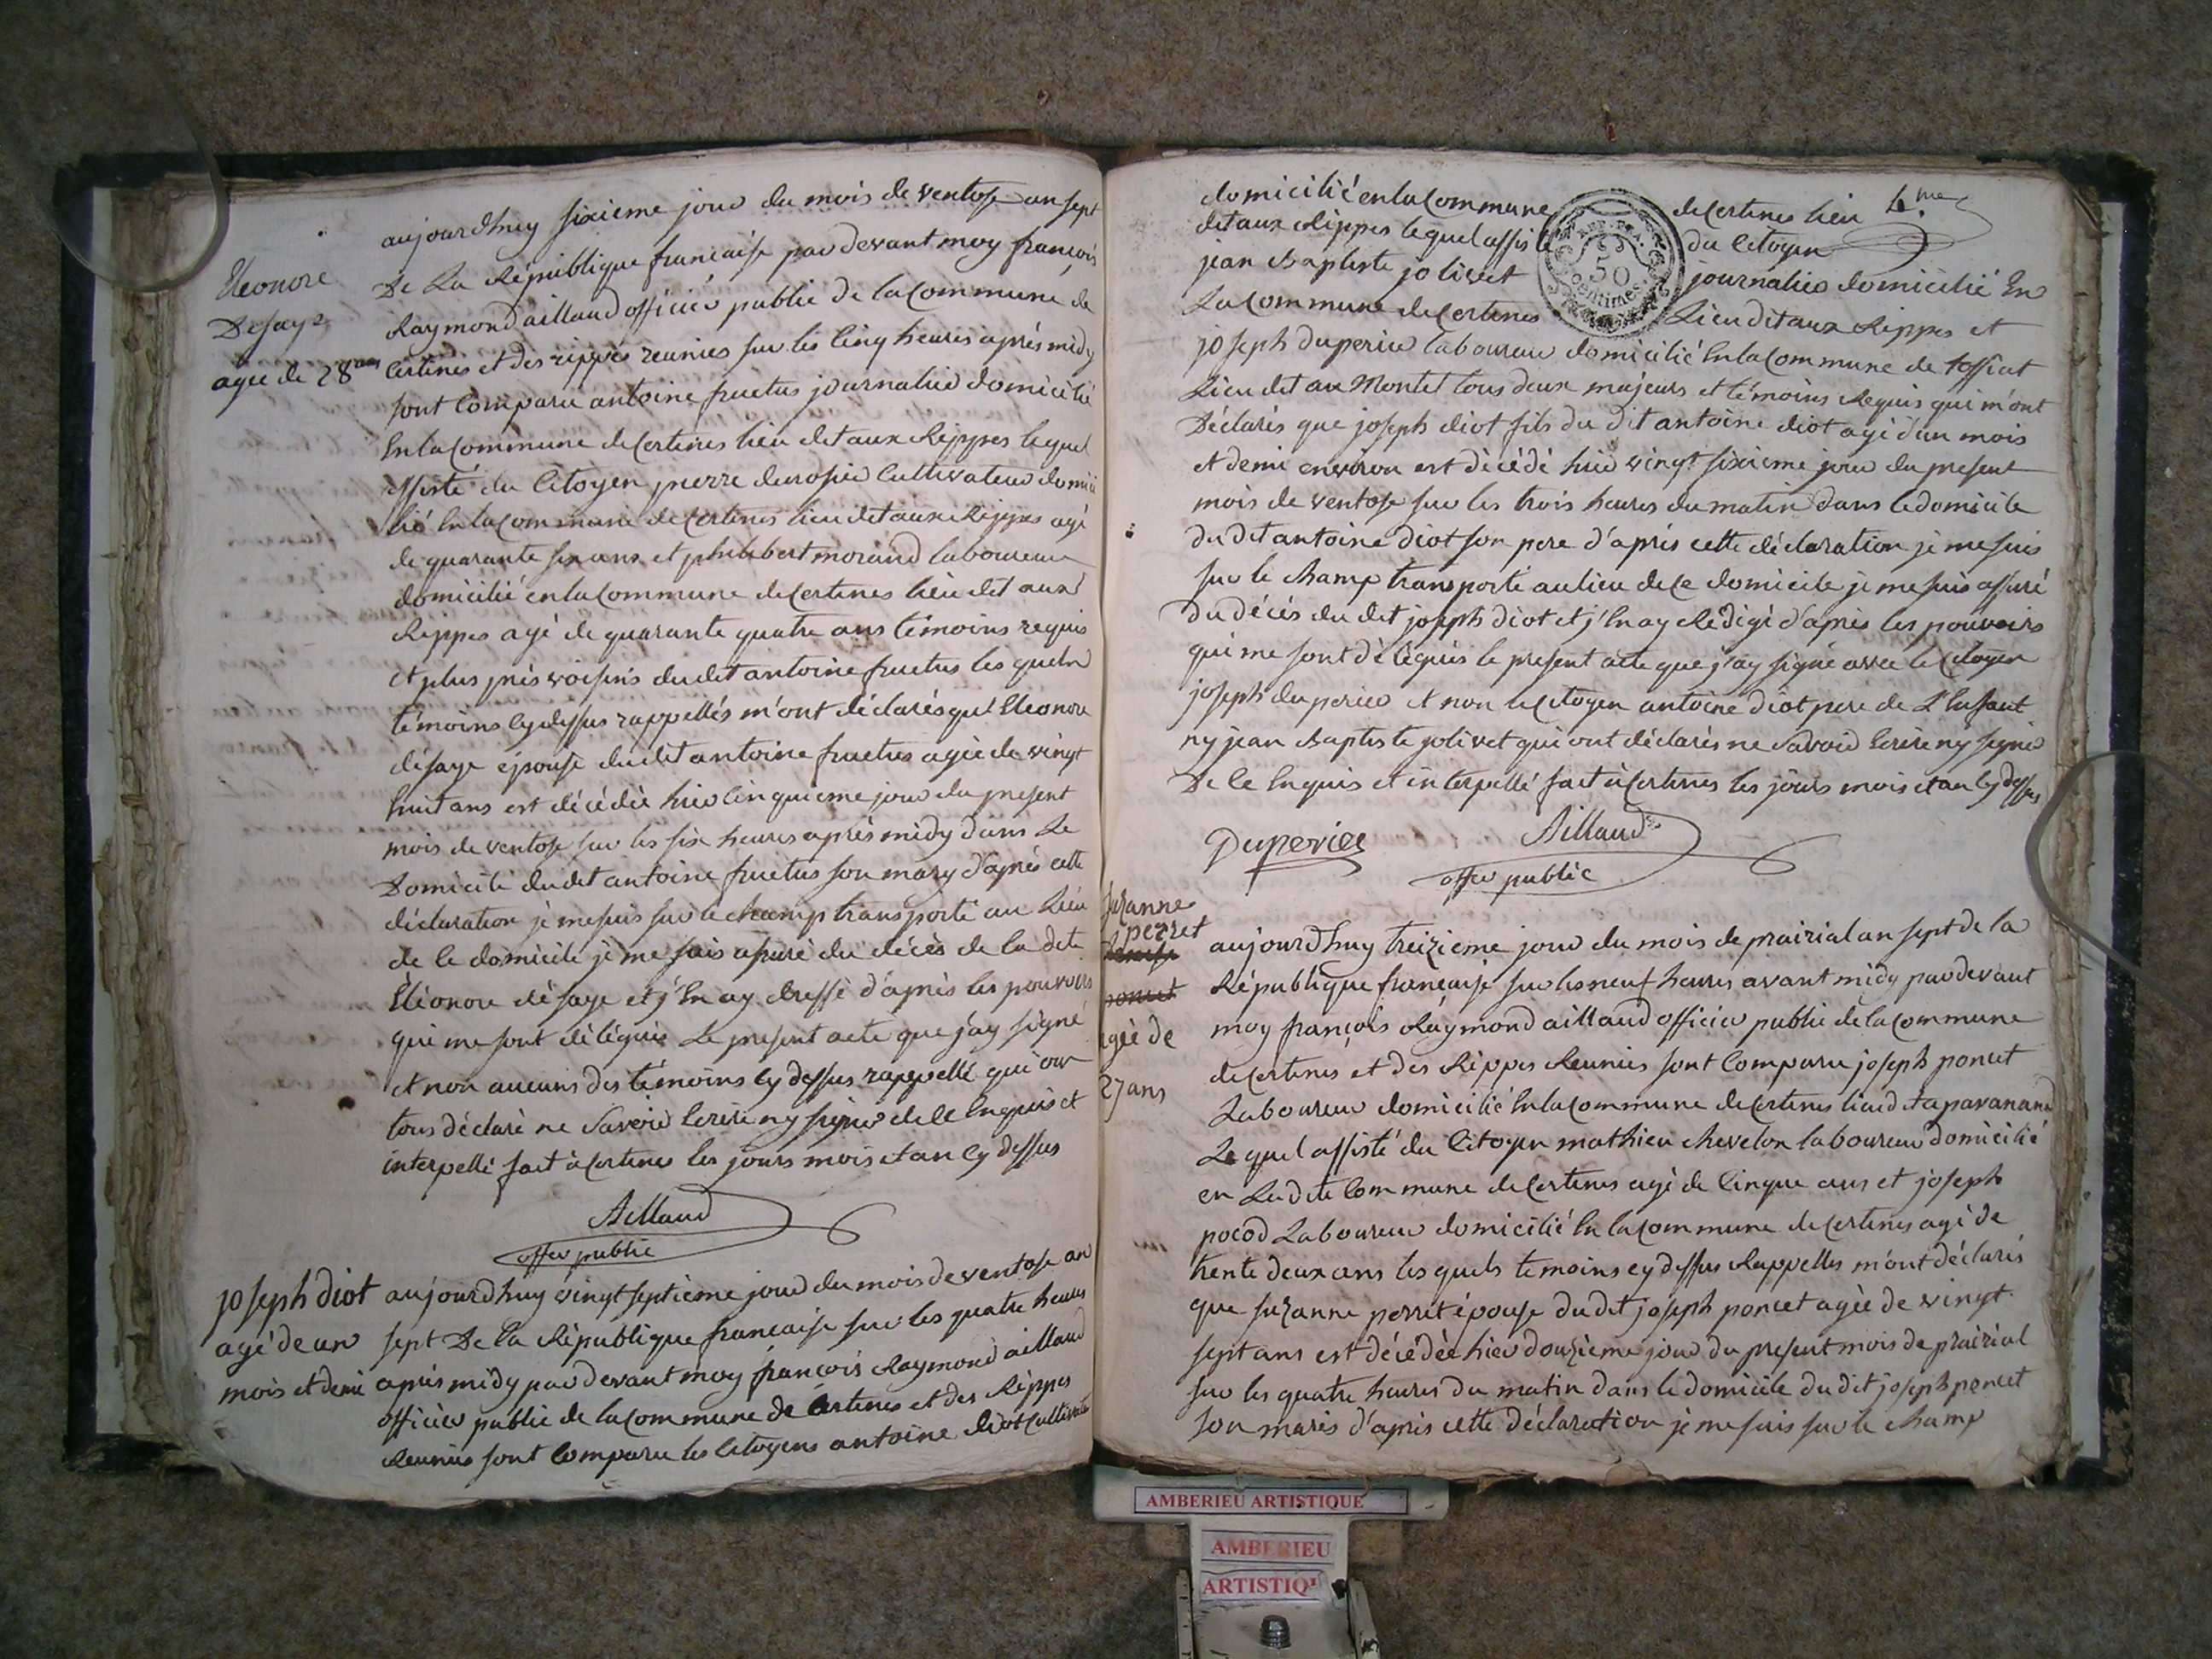 Eleonore
Desaye
agée de 28 ans
aujourdhuy sixieme jour du mois de ventose an sept
De La République francaise par devant moy françois
Raymond aillaud officier public de la Commune de
Certines et des rippes reunies sur les Cinq heures après midy
sont Comparu antoine fructus journalier domicilié
En la Commune de Certines lieu dit aux Rippes lequel
assisté du Citoyen pierre durosier Cultivateur domici
lié En la Commune de Certines lieu dit aux Rippes agé
de quarante six ans et philibert morand laboureur
domicilié en la Commune de Certines lieu dit aux
Rippes agé de quarante quatre ans témoins requis
et plus près voisins du dit antoine fructus les quels
témoins Cy dessus rappellés m'ont déclarés qu'Eleonore
désaye épouse du dit antoine fructus agée de vingt
huit ans est décédée hier Cinquieme jour du present
mois de ventose sur les six heures après midy dans Le
Domicile du dit antoine fructus son mary d'après cette
déclaration je me suis sur le champ transporté au Lieu
de Ce domicile je me suis assuré du décès de la dite
Eléonore désaye et j'En ay dressé d'après les pouvoirs
qui me sont délégués Le present acte que j'ay signé
et non aucuns des témoins Cy dessus rappellé qui on
tous déclaré ne Savoir Ecrire ny signer de Ce Enquis et
interpellé fait à Certines les jours mois et an Cy dessus
Aillaud
offer public
joseph diot
agé de un
mois et demi
aujourdhuy vingt septieme jour du mois de ventose an
sept De la République francaise sur les quatre heures
après midy par devant moy françois Raymond aillaud
officier public de la Commune de Certines et des Rippes
Reunies sont Comparu les Citoyens antoine diot Cultivateur
domicilié en la Commune de Certines lieu
dit aux Rippes lequel assisté du Citoyen
jean Baptiste jolivet journalier domicilié En
La Commune de Certines Lieu dit aux Rippes et
50
Centimes
joseph duperier laboureur domicilié En la Commune de tossiat
Lieu dit au Montet tous deux majeurs et témoins Requis qui m'ont
Déclarés que joseph diot fils du dit antoine diot agé d'un mois
et demi environ est décédé hier vingt sixieme jour du present
mois de ventose sur les trois heures du matin dans le domicile
du dit antoine diot son pere d'après cette déclaration je me suis
sur le champ transporté au lieu de Ce domicile je me suis assuré
du décès du dit joseph diot et j'En ay Rédigé d'après les pouvoirs
qui me sont délégués le present acte que j'ay signé avec le Citoyen
joseph duperier et non le Citoyen antoine diot pere de L'Enfant
ny jean Baptiste jolivet qui ont déclarés ne Savoir Ecrire ny signer
De Ce Enquis et interpellé fait à Certines les jours mois et an Cy dessus
Duperier
Aillaud
offer public
suzanne
perret
poncet
agée de
27 ans
aujourdhuy treizieme jour du mois de prairial an sept de la
République francaise sur les neuf heures avant midy par devant
moy françois Raymond aillaud officier public de la Commune
de Certines et des Rippes Reunies sont Comparu joseph poncet
Laboureur domicilié En la Commune de Certines lieu dit
Le quel assisté du Citoyen mathieu chevelon laboureur domicilié
en La dite Commune de Certines agé de Cinque ans et joseph
pocod Laboureur domicilié En la Commune de Certines agé de
trente deux ans les quels temoins cy dessus Rappelles m'ont déclarés
que suzanne perret épouse du dit joseph poncet agée de vingt
sept ans est décédée hier douzieme jour du present mois de prairial
sur les quatre heures du matin dans le domicile du dit joseph poncet
son maris d'après cette déclaration je me suis sur le champ
AMBERIEU ARTISTIQUE
AMBERIEU
ARTISTIQ